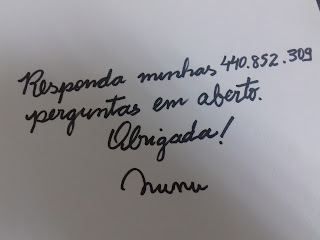 Responda minhas 440.852.309
perguntas em aberto.
Obrigada!
Nunu